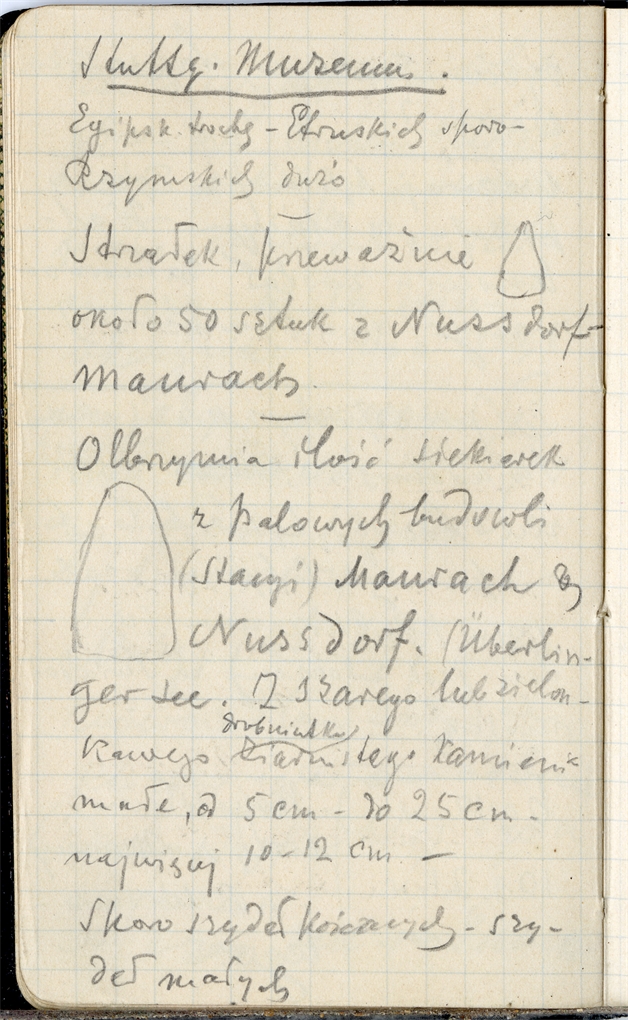 Stuttg. Muzeum.
Egipsk. trochę – Etruskich sporo –
Rzymskich dużo
Strzałek, przeważnie
około 50 sztuk z Nussdorf-
Maurach.
Olbrzymia ilość siekierek
z palowych budowli
(Stacyi) Maurach
Nussdorf. (Überlin-
ger see. Z szarego lub zielon-
kawego
drobniutko
ziarnistego kamienia
małe, od 5 cm – do 25 cm –
najwięcej 10-12 cm –
Sporo szydeł kościanych – szy-
deł małych